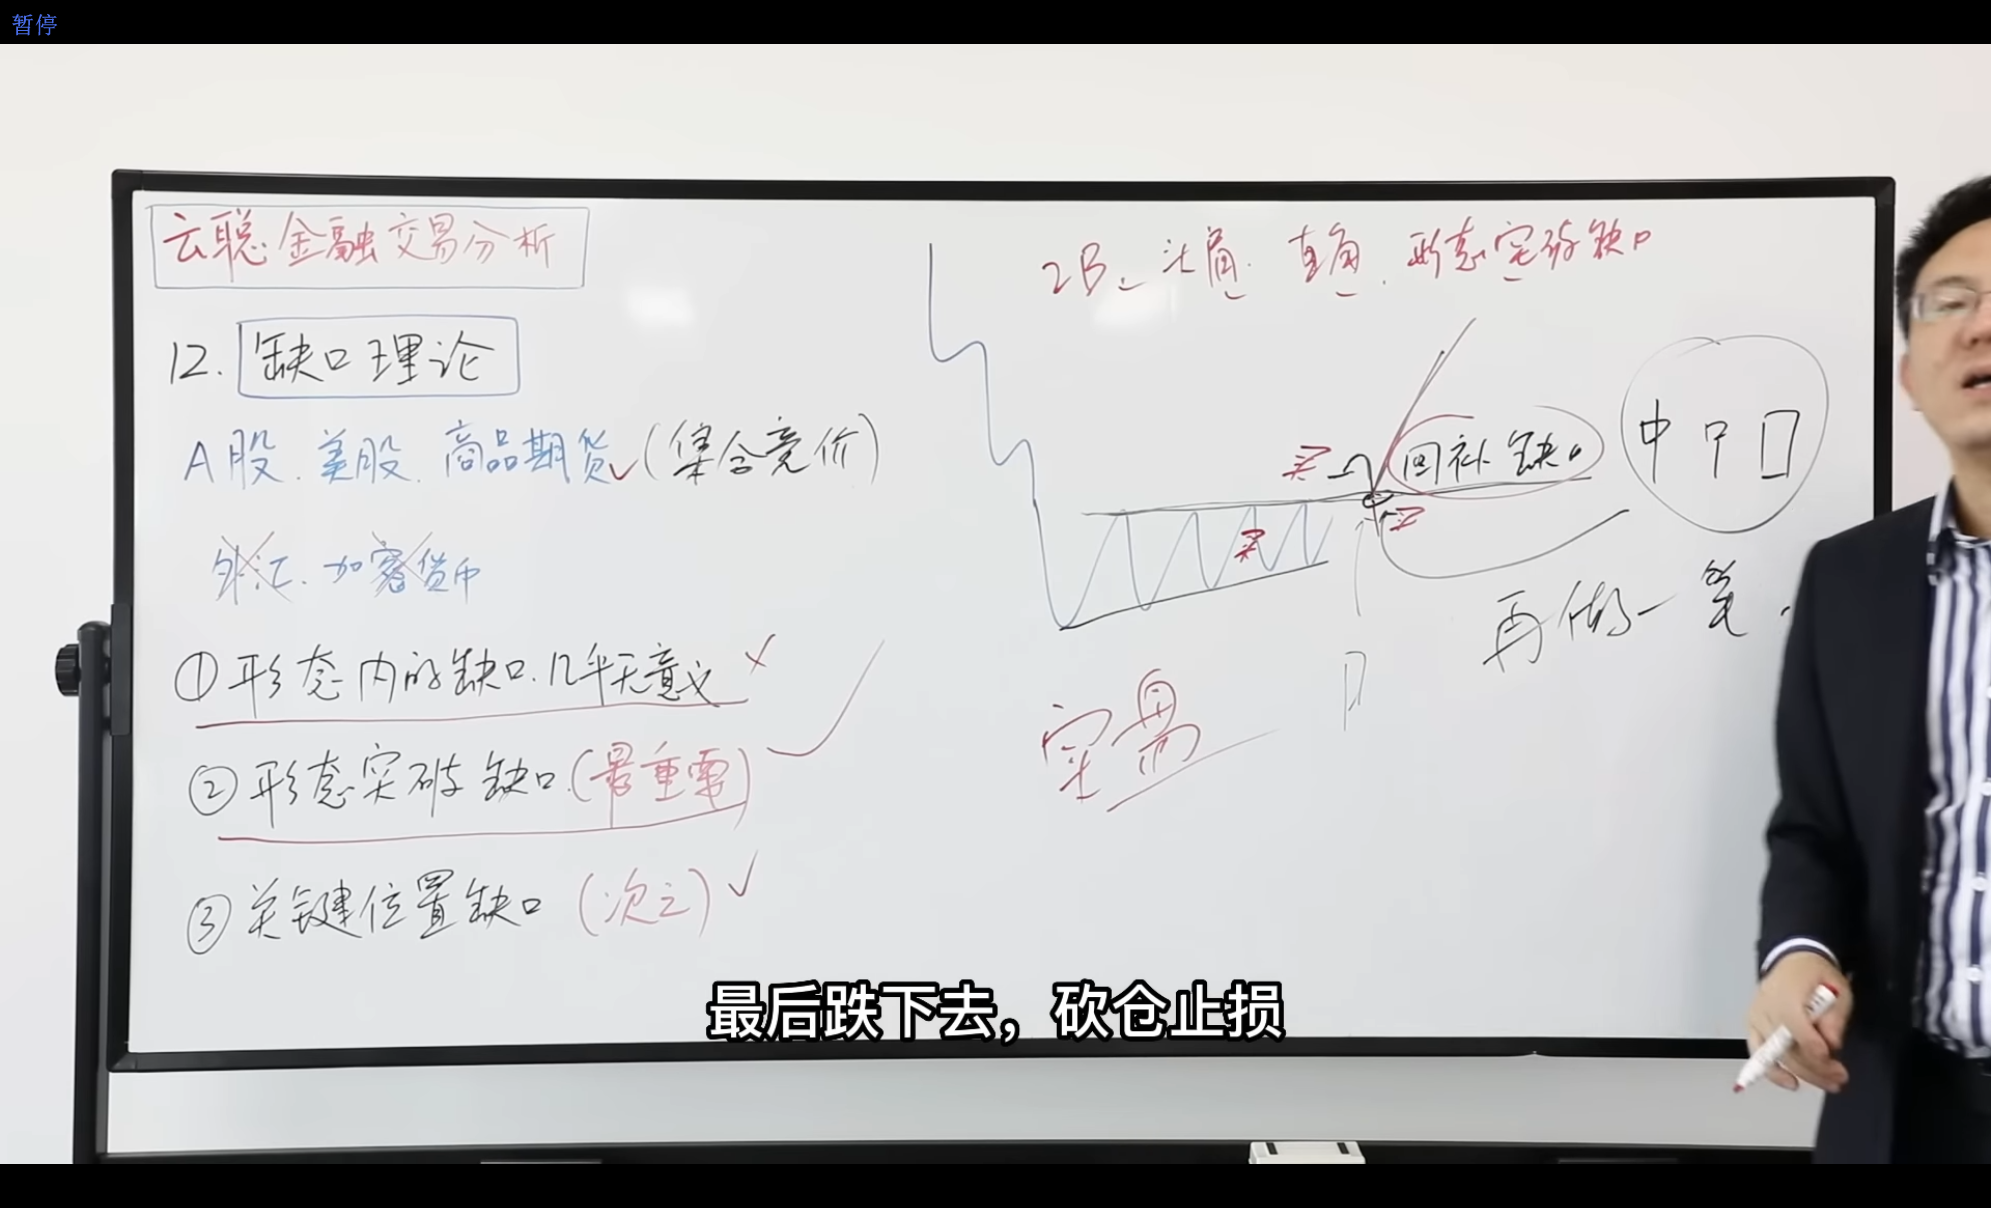 暂停
云聪金融交易分析
12. 缺口理论
A股、美股、商品期货✓(集合竞价)
外汇、加密货币
①形态内的缺口.几乎无意义 ×
②形态突破缺口.(最重要)
③关键位置缺口 (次之) ✓
2B、头肩、直角、形态突破缺口
买
回补缺口
买
买
再做一笔.
最后跌下去，砍仓止损